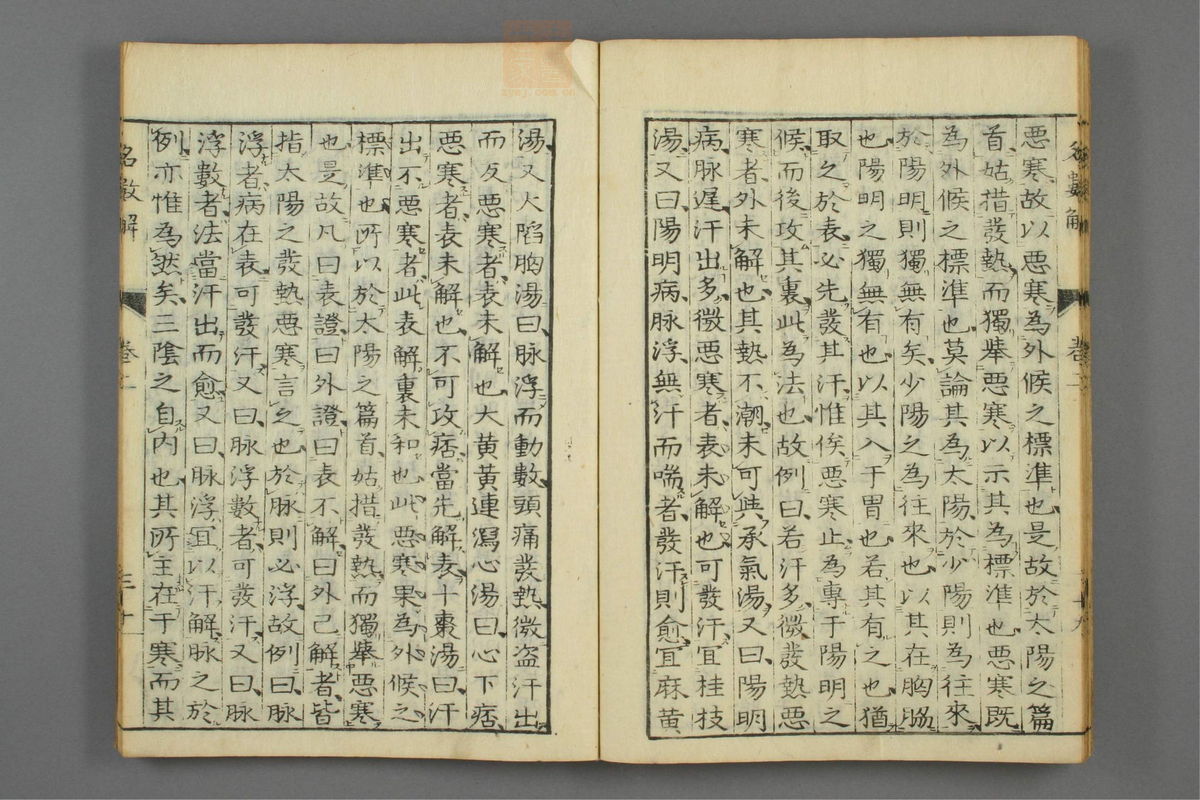 惡寒故以惡寒爲外候之標準也是故於太陽之篇
首姑措發熱而獨舉惡寒以示其爲標準也惡寒既
爲外候之標準也莫論其爲太陽於少陽則爲往來
於陽明則獨無有矣少陽之爲往來也以其在胸脇
也陽明之獨無有也以其入于胃也若其有之也猶
取之於表必先發其汗惟俟惡寒止爲專于陽明之
候而後攻其裏此爲法也故例曰若汗多微發熱惡
寒者外未解也其熱不潮未可與承氣湯又曰陽明
病脉遲汗出多微惡寒者表未解也可發汗宜桂枝
湯又曰陽明病脉浮無汗而喘者發汗則愈宜麻黃
湯又大陷胸湯曰脉浮而動數頭痛發熱微盗汗出
而反惡寒者表未解也大黃黃連瀉心湯曰心下痞
惡寒者表未解也不可攻痞當先解表十棗湯曰汗
出不惡寒者此表解裏未和也此惡寒果爲外候之
標準也所以於太陽之篇首姑措發熱而獨舉惡寒
也是故凡曰表證曰外證曰表不解曰外已解者皆
指太陽之發熱惡寒言之也於脉則必浮故例曰脉
浮者病在表可發汗又曰脉浮數者可發汗又曰脉
浮數者法當汗出而愈又曰脉浮宜以汗解脉之於
例亦惟爲然矣三陰之自內也其所主在于寒而其
名數解
卷
三十